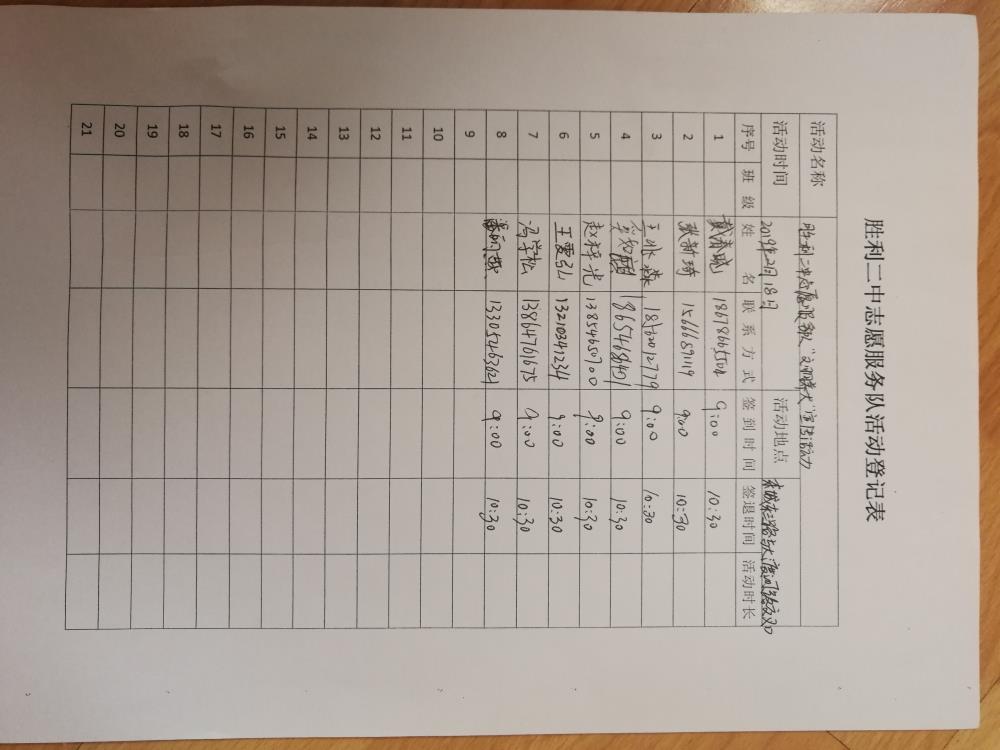 胜利二中志愿服务队活动登记表
活动名称 胜利二中志愿服务队"文明
活动时间 2019年2月18日 活动地点 东城东三路与大渡河路交叉口
序号 班级 姓名 联系方式 签到时间 签退时间 活动时长
1 戴春晓 9:00 10:30
2 张新琦 15666891119 9:00 10:30
3 18562012779 9:00 10:30
4 18654684401 9:00 10:30
5 赵梓光 13854650700 9:00 10:30
6 王雪弘 13210341234 9:00 10:30
7 冯学松 13864761675 9:00 10:30
8 13305463621 9:00 10:30
9
10
11
12
13
14
15
16
17
18
19
20
21